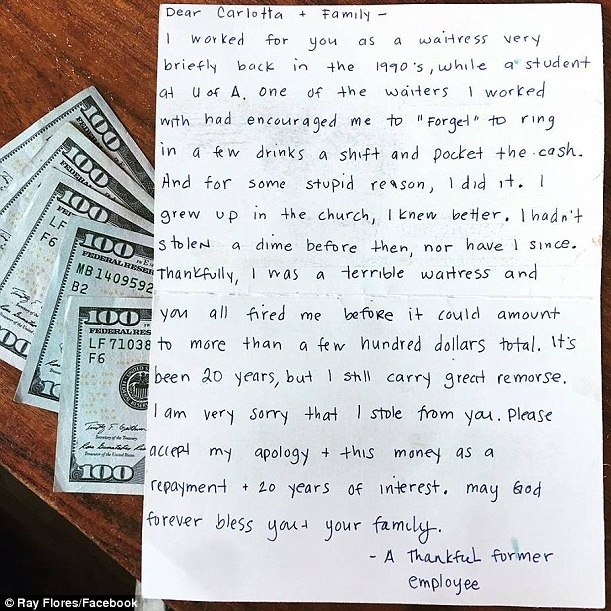 Dear Carlotta + Family -
I worked for you as a waitress very
briefly back in the 1990's, while a student
at U of A. One of the waiters I worked
with had encouraged me to "Forget" to ring
in a few drinks a shift and pocket the cash.
And for some stupid reason, I did it. I
grew up in the church, I knew better. I hadn't
stolen a dime before then, nor have I since.
Thankfully, I was a terrible waitress and
you all fired me before it could amount
to more than a few hundred dollars total. It's
been 20 years, but I still carry great remorse.
I am very sorry that I stole from you. Please
accept my apology + this money as a
repayment + 20 years of interest. may God
forever bless you + your family.
- A Thankful former
employee
100
100
100
LF
F6
100
FEDERAL RESER
MB1409592
B2
100
FEDERAL RES
LF71038
F6
Secretary of the Treasury
Treasurer of the United States
100
© Ray Flores/Facebook